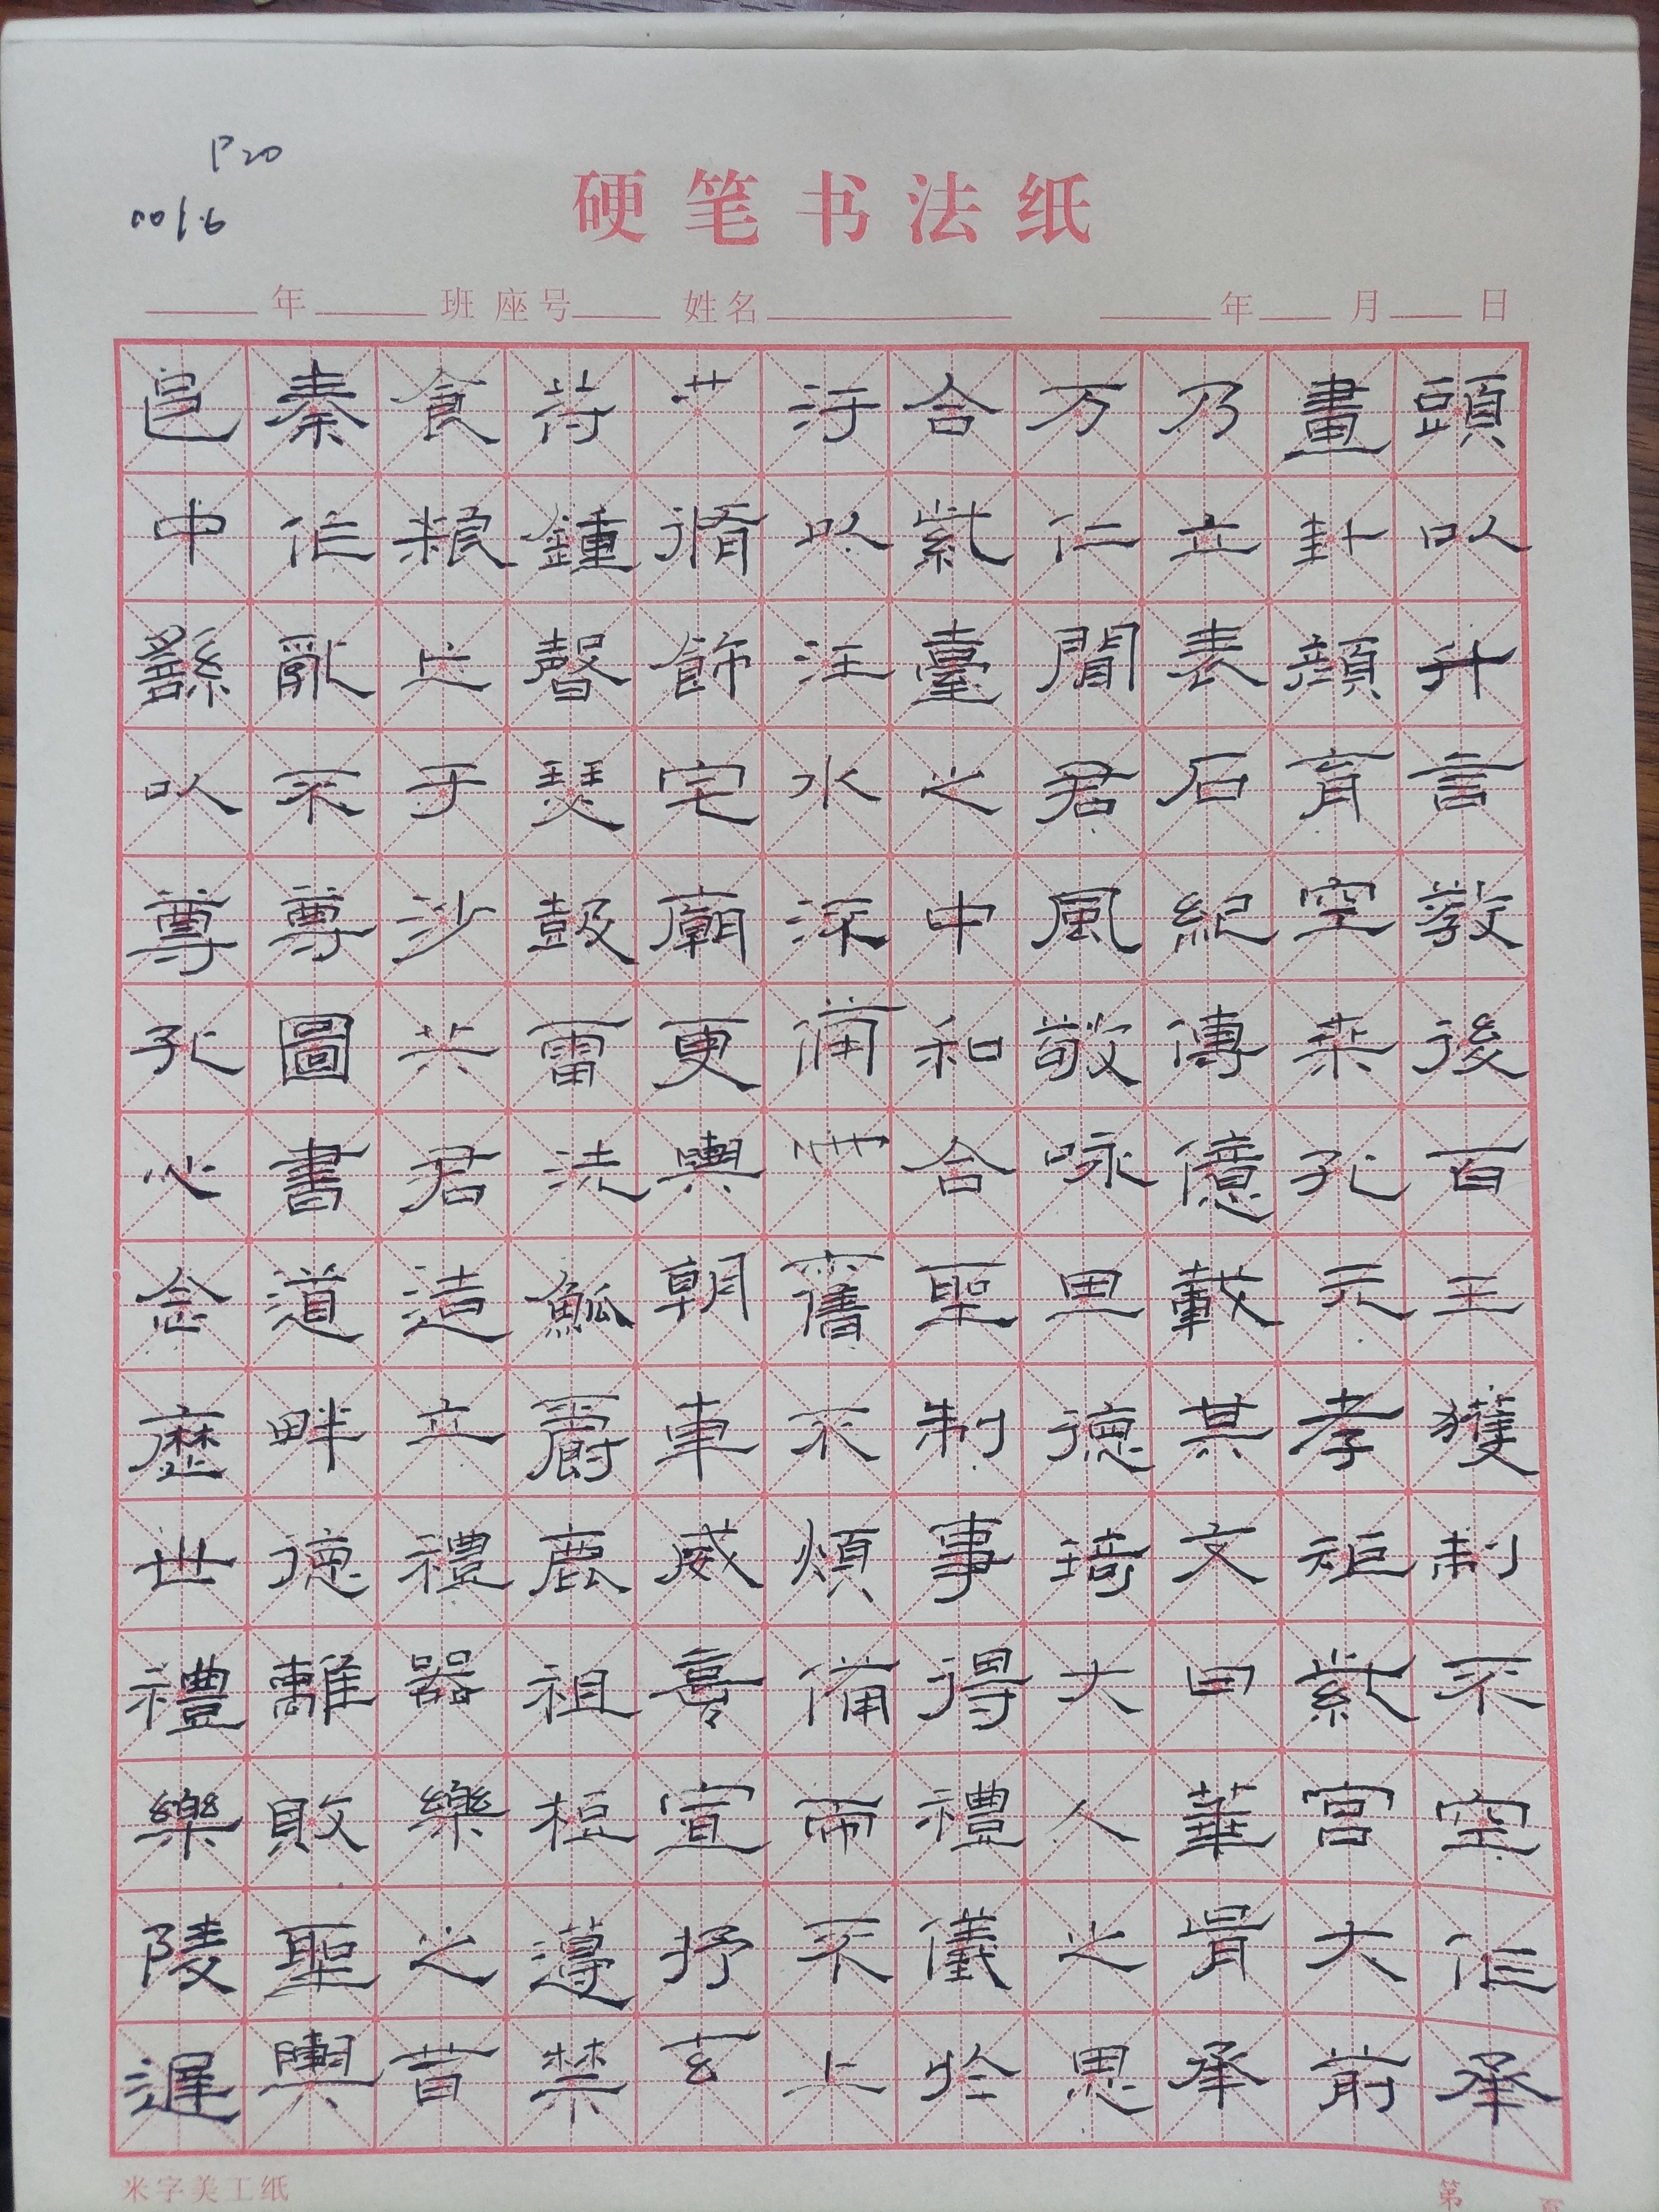 P20
001.6
硬笔书法纸
年 班 座号 姓名 年 月 日
頭以升言教後百王獲制不空作承
畫卦顏育空桑孔元孝矩紫宮大前
乃立表石紀傳億載其文曰華胥承
万仁聞君風敬咏德琦大人之思
合紫臺之中和合聖制事得禮儀於
汙以注水舊不煩備而不上
脩飾宅廟更輿朝車威熹宣抒玄
符鍾磬瑟鼓雷洗觚爵鹿祖梪籩禁
食粮亡于沙丘君造立禮器樂之音
秦作亂不尊圖書道畔德離敗聖輿
邑中繇以尊孔心念歷世禮樂陵遲
米字美工纸
第 页